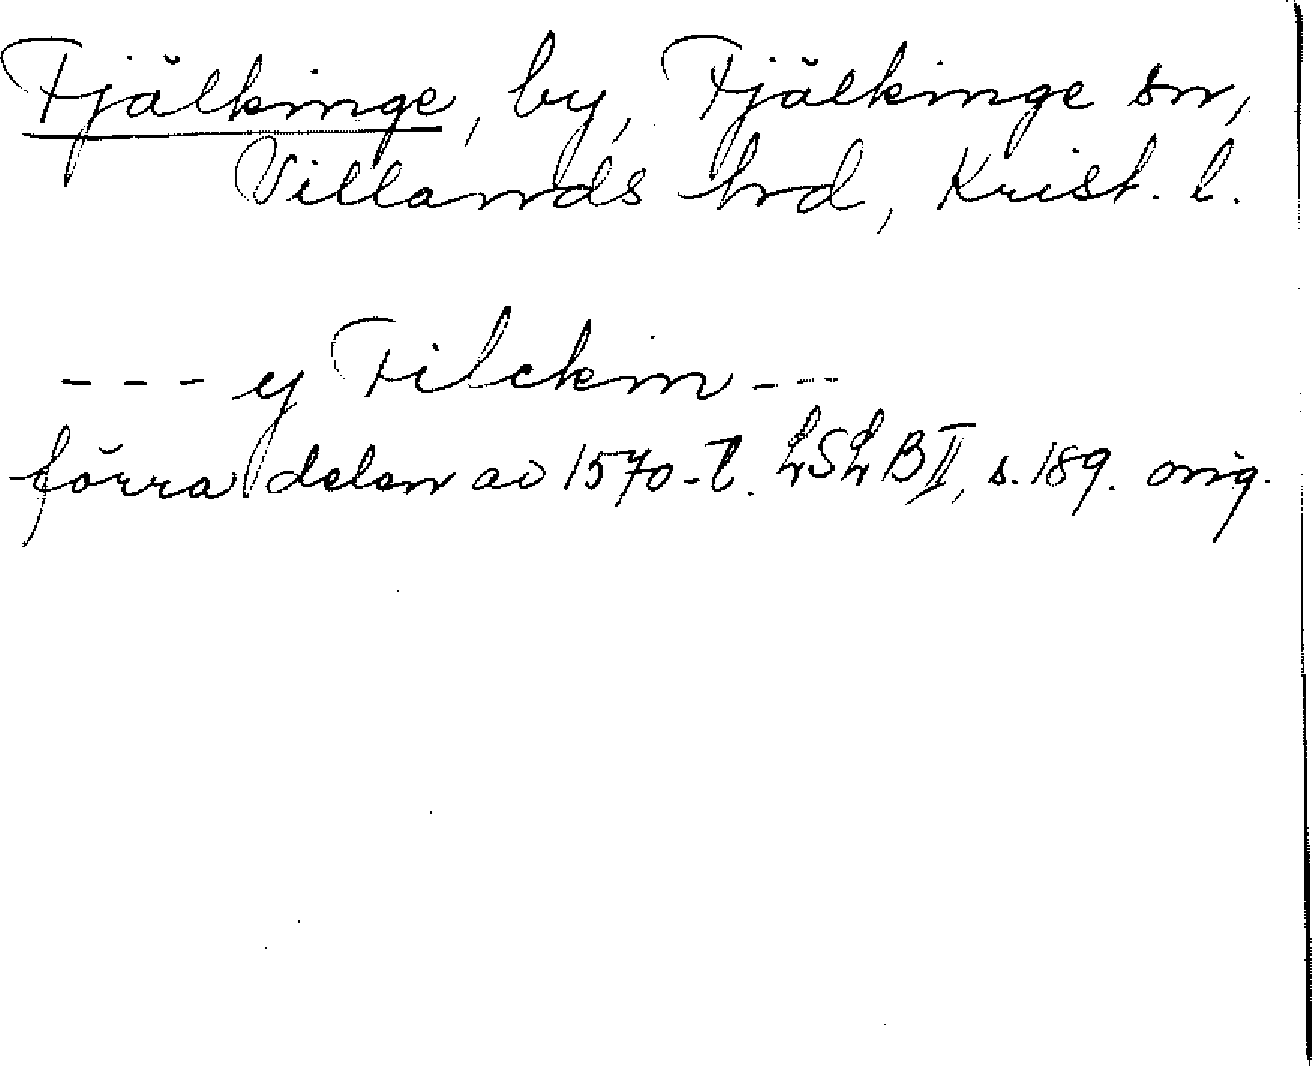 Fjälkinge, by, Fjälkinge sn,
Villands hrd, Krist. l.
--- y Filckin ---
förra delen av 1570-t. LSLB II, s. 189. orig.